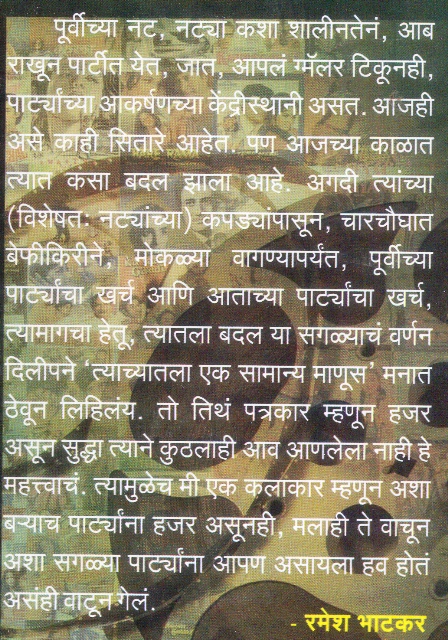 पूर्वीच्या नट, नट्या कशा शालीनतेनं, आब
राखून पार्टीत येत, जात, आपलं ग्मॅलर टिकूनही,
पार्ट्यांच्या आकर्षणच्या केंद्रीस्थानी असत. आजही
असे काही सितारे आहेत. पण आजच्या काळात
त्यात कसा बदल झाला आहे. अगदी त्यांच्या
(विशेषतः नट्यांच्या) कपड्यांपासून, चारचौघात
बेफीकिरीने, मोकळ्या वागण्यापर्यंत, पूर्वीच्या
पार्ट्यांचा खर्च आणि आताच्या पार्ट्यांचा खर्च,
त्यामागचा हेतू, त्यातला बदल या सगळ्याचं वर्णन
दिलीपने ‘त्याच्यातला एक सामान्य माणूस’ मनात
ठेवून लिहिलंय. तो तिथं पत्रकार म्हणून हजर
असून सुद्धा त्याने कुठलाही आव आणलेला नाही हे
महत्त्वाचं. त्यामुळेच मी एक कलाकार म्हणून अशा
बऱ्याच पार्ट्यांना हजर असूनही, मलाही ते वाचून
अशा सगळ्या पार्ट्यांना आपण असायला हव होतं
असंही वाटून गेलं.
- रमेश भाटकर